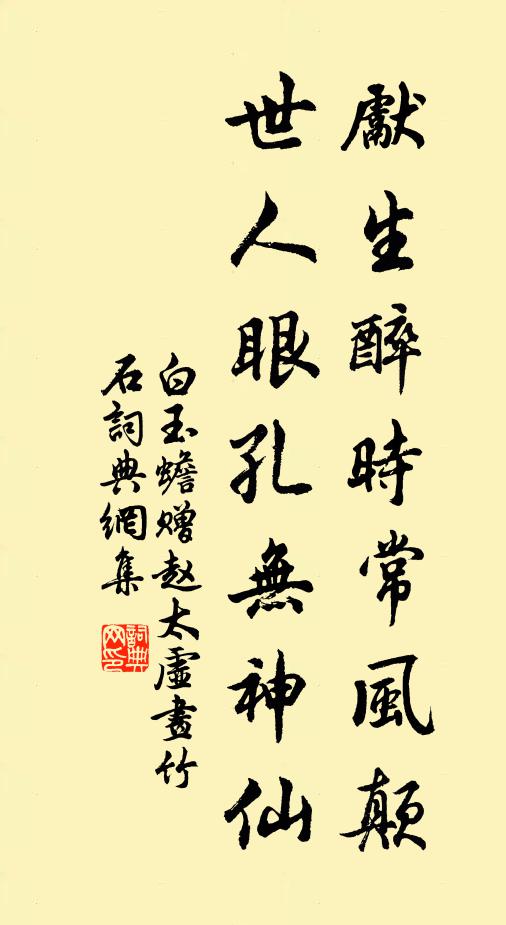 獻生醉時常風顛
世人眼孔無神仙
白玉蟾贈赵太虛畫竹
石詞典網集
詞典网印